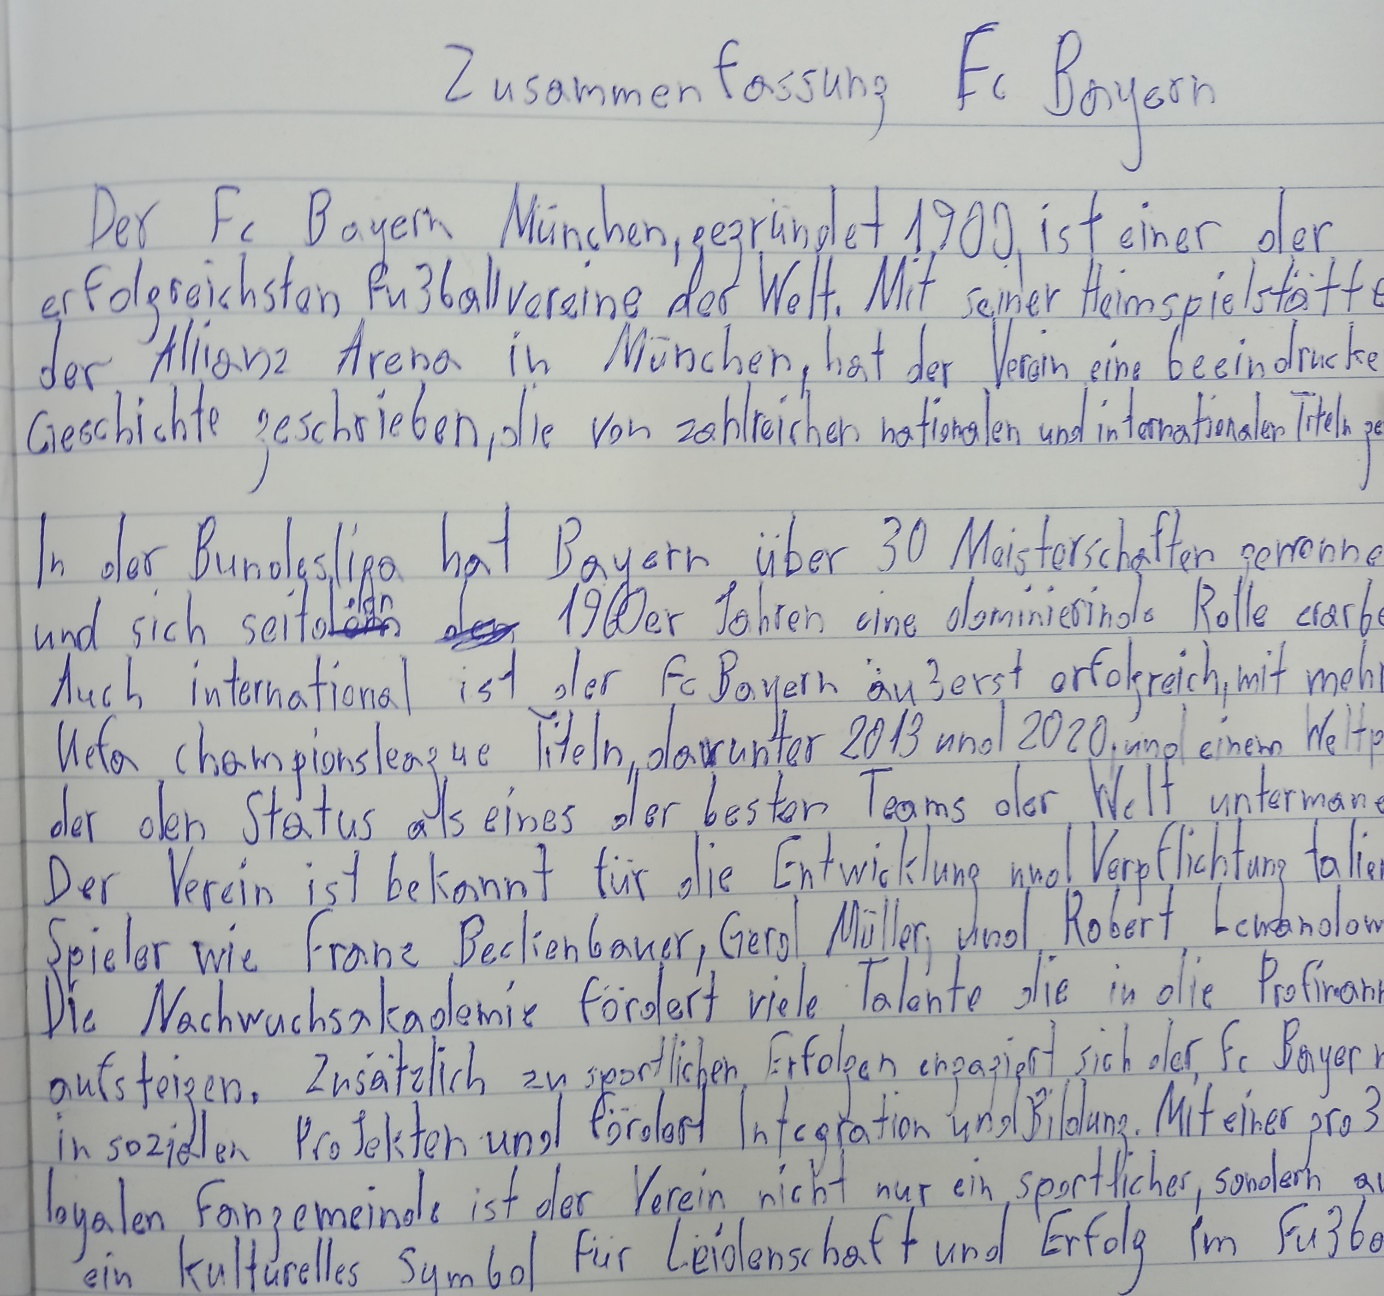 Zusammenfassung Fc Bayern
Der Fc Bayern München, gegründet 1900, ist einer der
erfolgreichsten Fußballvereine der Welt. Mit seiner Heimspielstätte
der Allianz Arena in München, hat der Verein eine beeindrucke
Geschichte geschrieben, die von zahlreichen nationalen und internationalen Titeln ge
In der Bundesliga hat Bayern über 30 Meisterschaften gewonne
und sich seit den 1960er Jahren eine dominierinde Rolle erarbe
Auch international ist der Fc Bayern äußerst erfolgreich, mit mehr
Uefa championsleague Titeln, darunter 2013 und 2020, und einem Weltp
der den Status als eines der besten Teams der Welt untermaue
Der Verein ist bekannt für die Entwicklung und Verpflichtung talien
Spieler wie Franz Beckenbauer, Gerd Müller, und Robert Lewandow
Die Nachwuchsakademie fördert viele Talente die in die Profimann
aufsteigen. Zusätzlich zu sportlichen Erfolgen engagiert sich der Fc Bayern
in sozialen Projekten und fördert Integration und Bildung. Mit einer groß
loyalen Fangemeinde ist der Verein nicht nur ein sportlicher, sondern au
ein kulturelles Symbol für Leidenschaft und Erfolg im Fußba